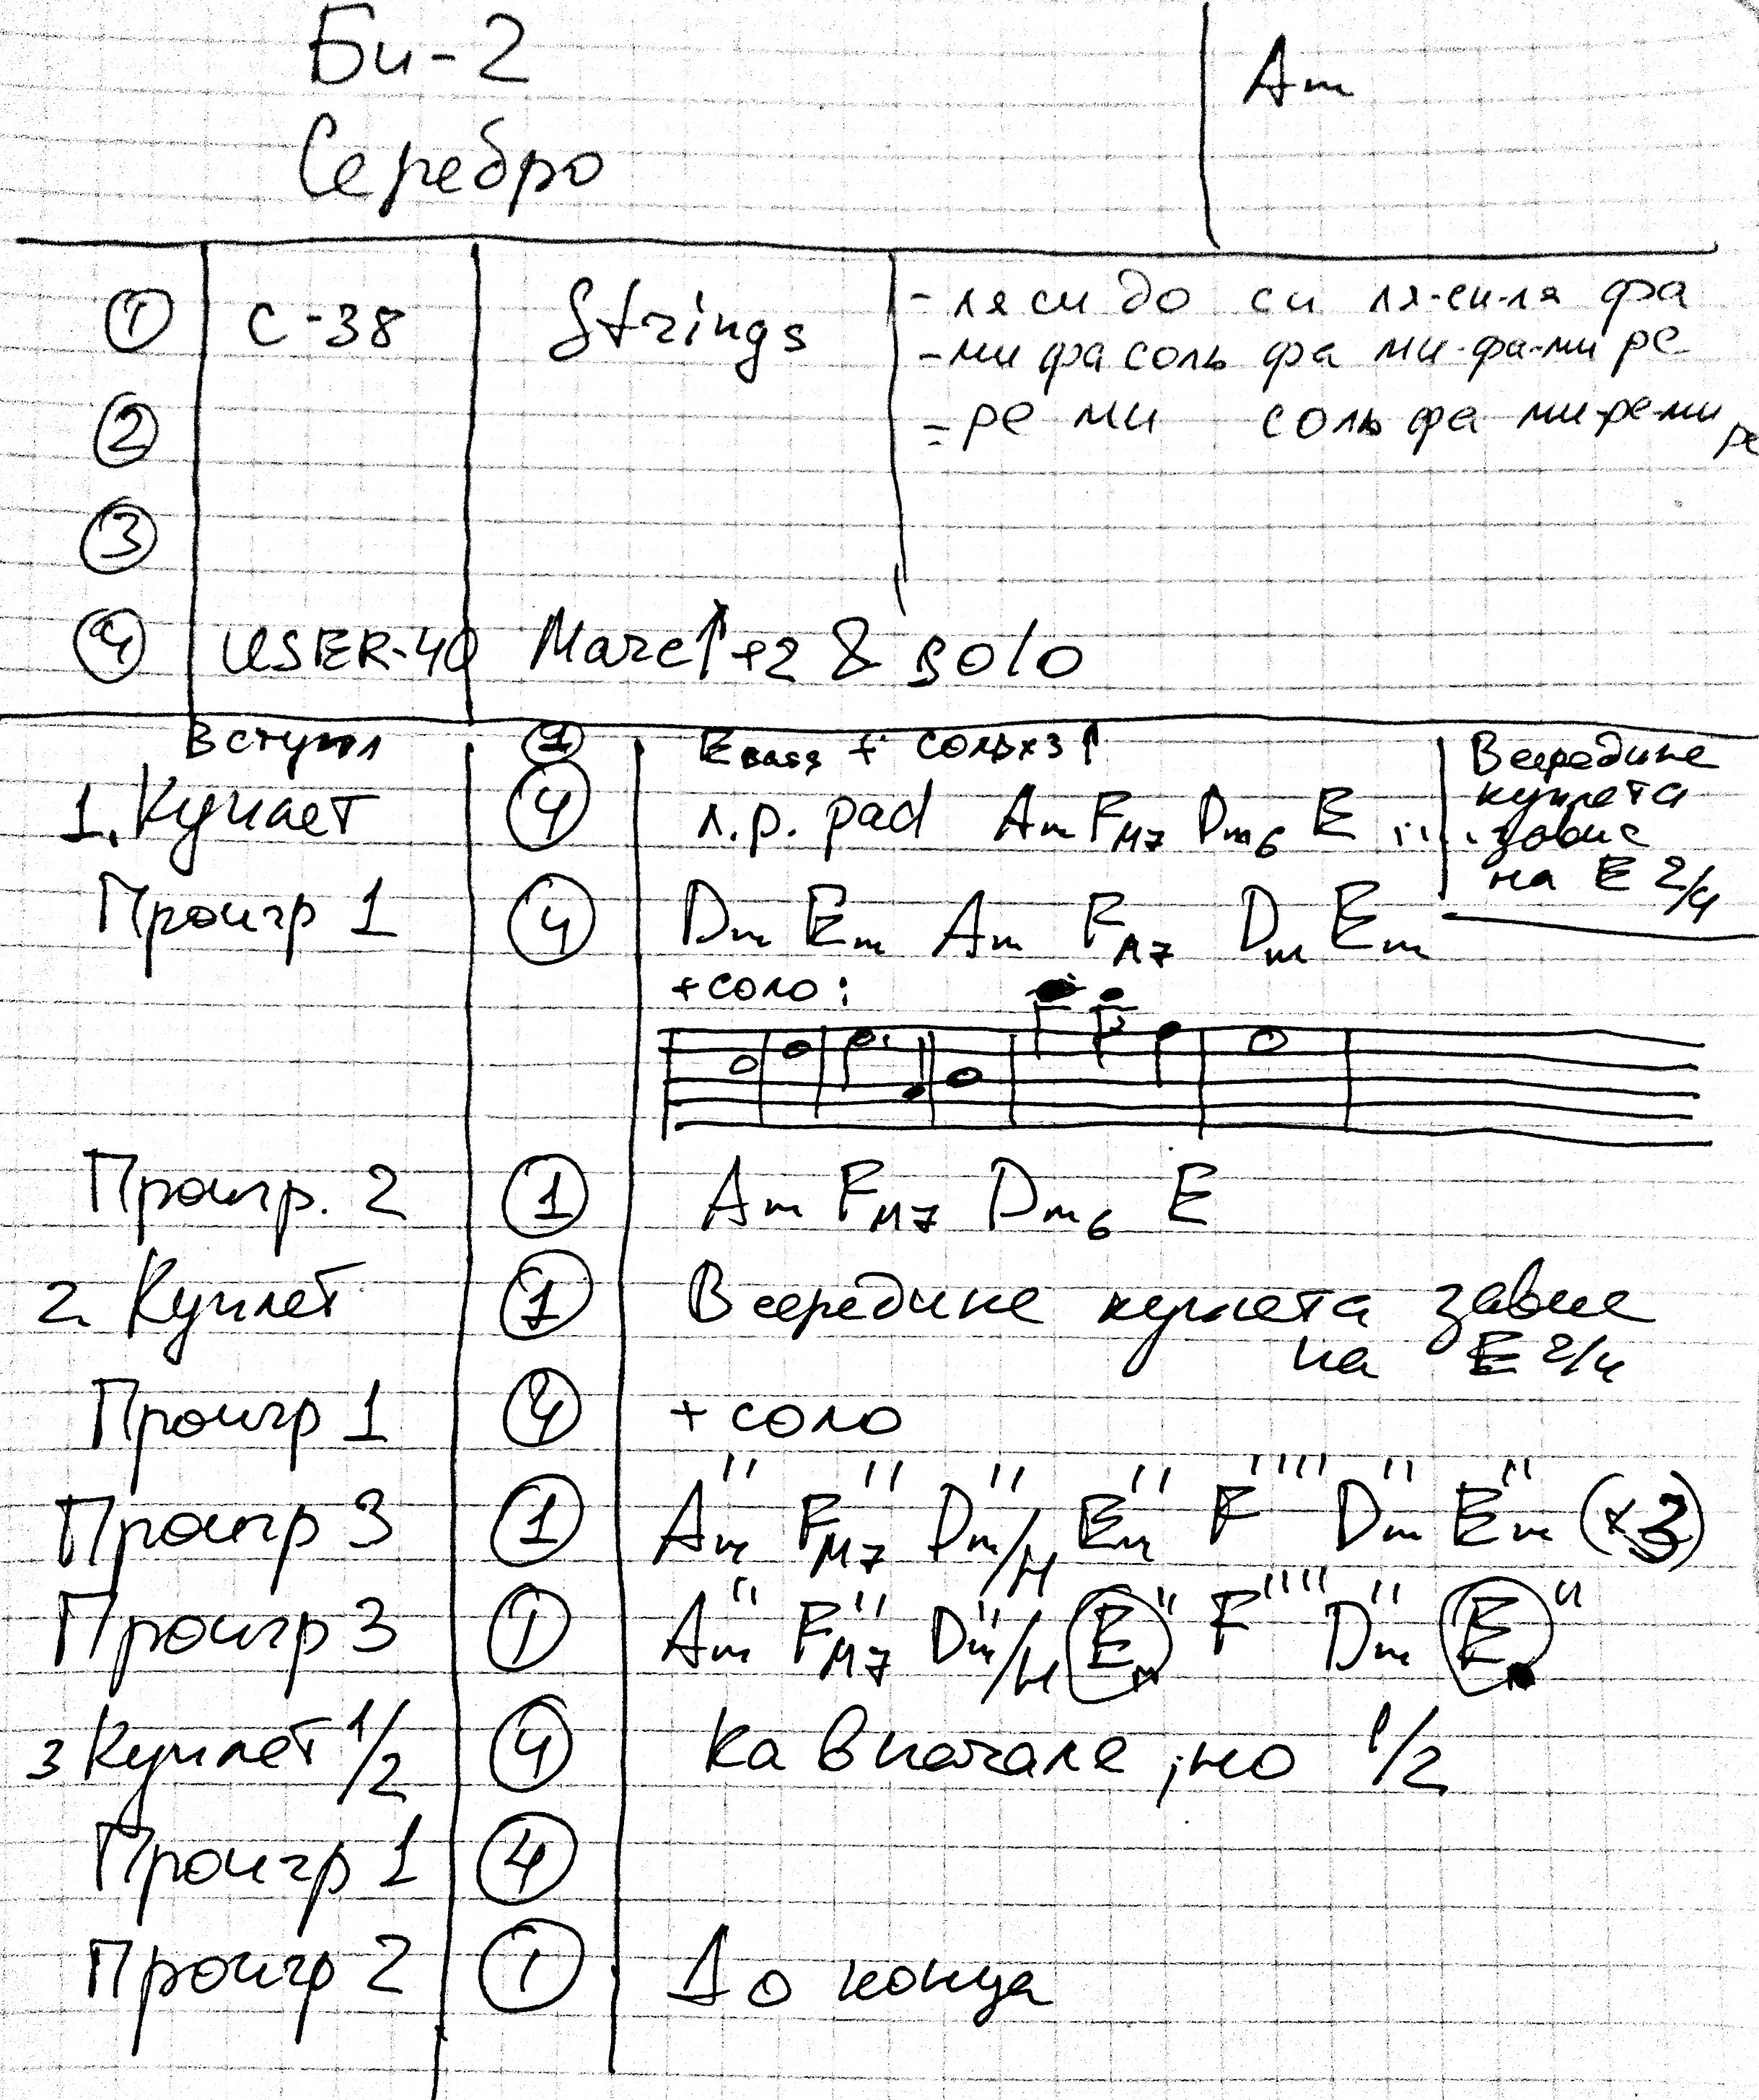 Би-2 Am
Серебро
① C-38 Strings - ля си до си ля-си-ля фа
- ми фа соль фа ми-фа-ми ре
② - ре ми соль фа ми-ре-ми ре
③
④ USER-40 ↑+2 & solo
Вступл E Bass + соль×3↑ Всередине
1. Куплет ④ л.р. pad Am FM7 Dm6 E .... куплета
завис
на E 2/4
Проигр 1 ④ Dm Em Am FM7 Dm Em
+соло:
Проигр. 2 ① Am FM7 Dm6 E
2. Куплет ① Всередине куплета завис
на E 2/4
Проигр 1 ④ + соло
Проигр 3 ① Am" FM7" Dm/H" Em" F"" Dm" Em" (×3)
Проигр 3 ① Am" FM7" Dm/H" E" F"" Dm" E"
3 Куплет 1/2 ④ Ка вначале, но 1/2
Проигр 1 ④
Проигр 2 ① До конца